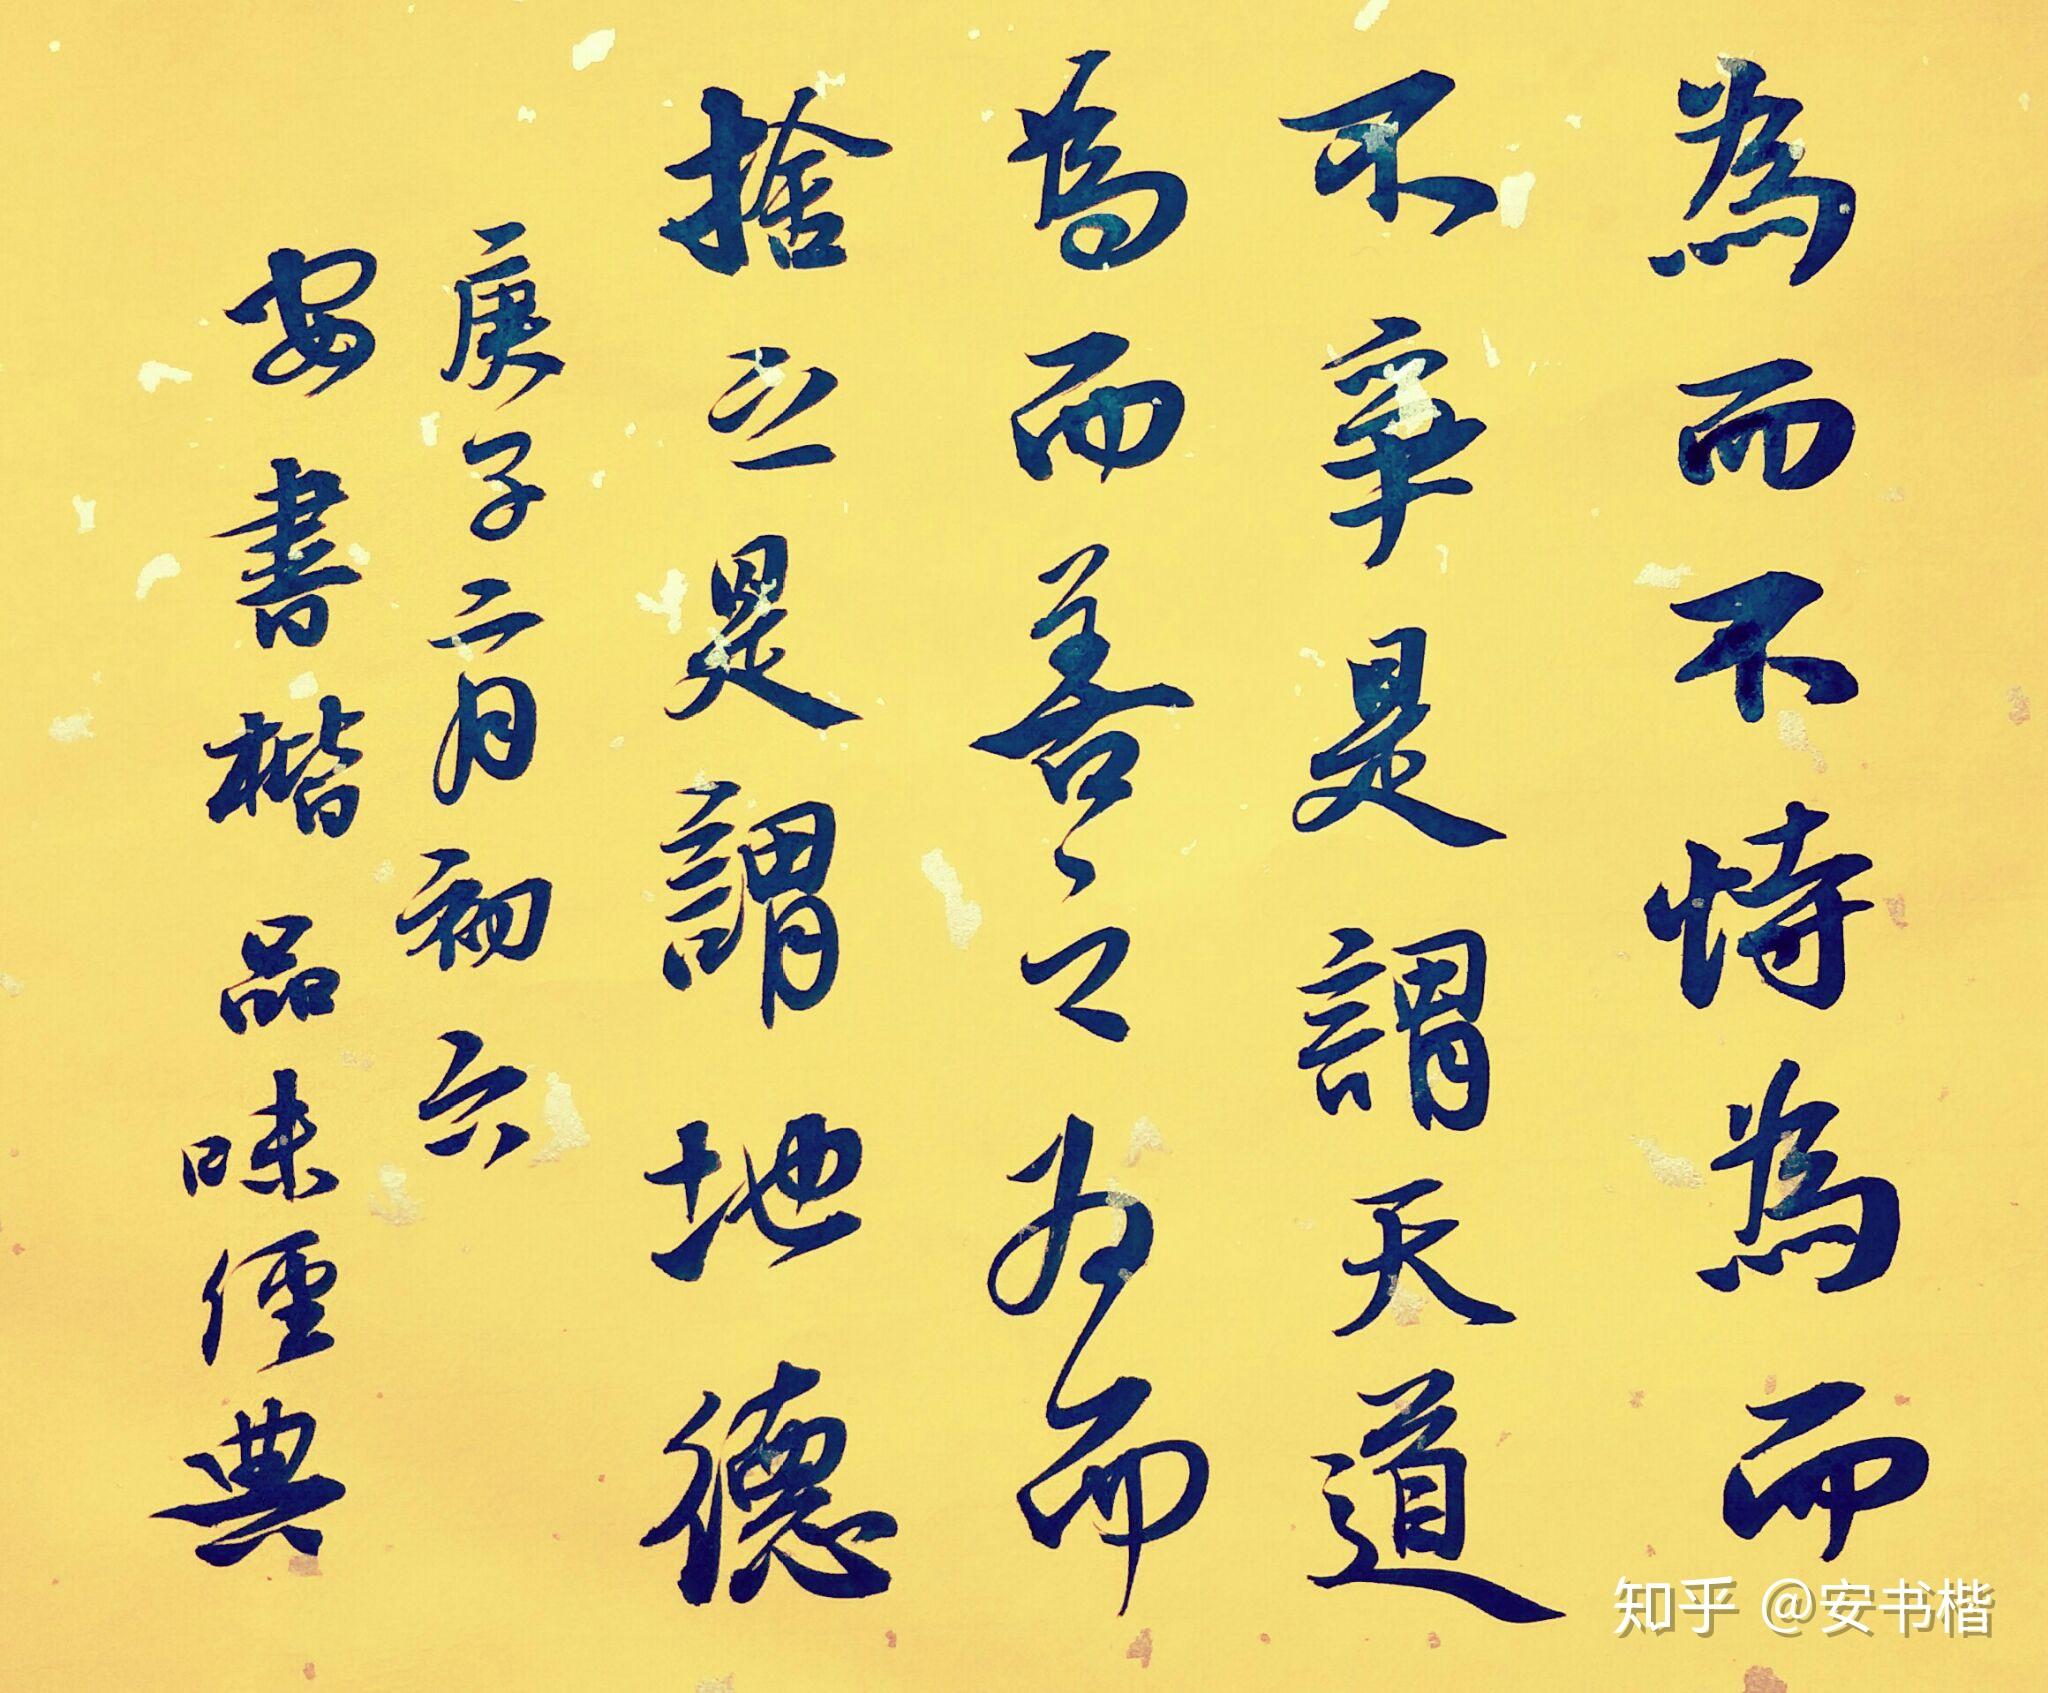 為而不恃為而
不宰是謂天道
為而善之为而
捨之是謂地德
庚子二月初六
安書楷品味經典
知乎 @安书楷